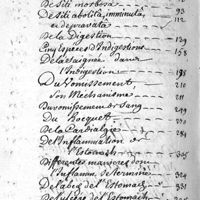 De siti morbosa
De siti abolita, imminuta, 93
et depravata 112
De la Digestion
En especes d'Indigestions 158
De la saignée dans
l'indigestion 198
Du Vomissement 210
Son Mechanisme 211
Du vomissement de sang
Du Hocquet
De la Cardialgie
De l'Inflammation de
l'Estomach 305
Differentes manieres dont
l'Inflamm. se termine 324
De l'abcès de l'Estomach 331
De l'ulcere de l'Estomach